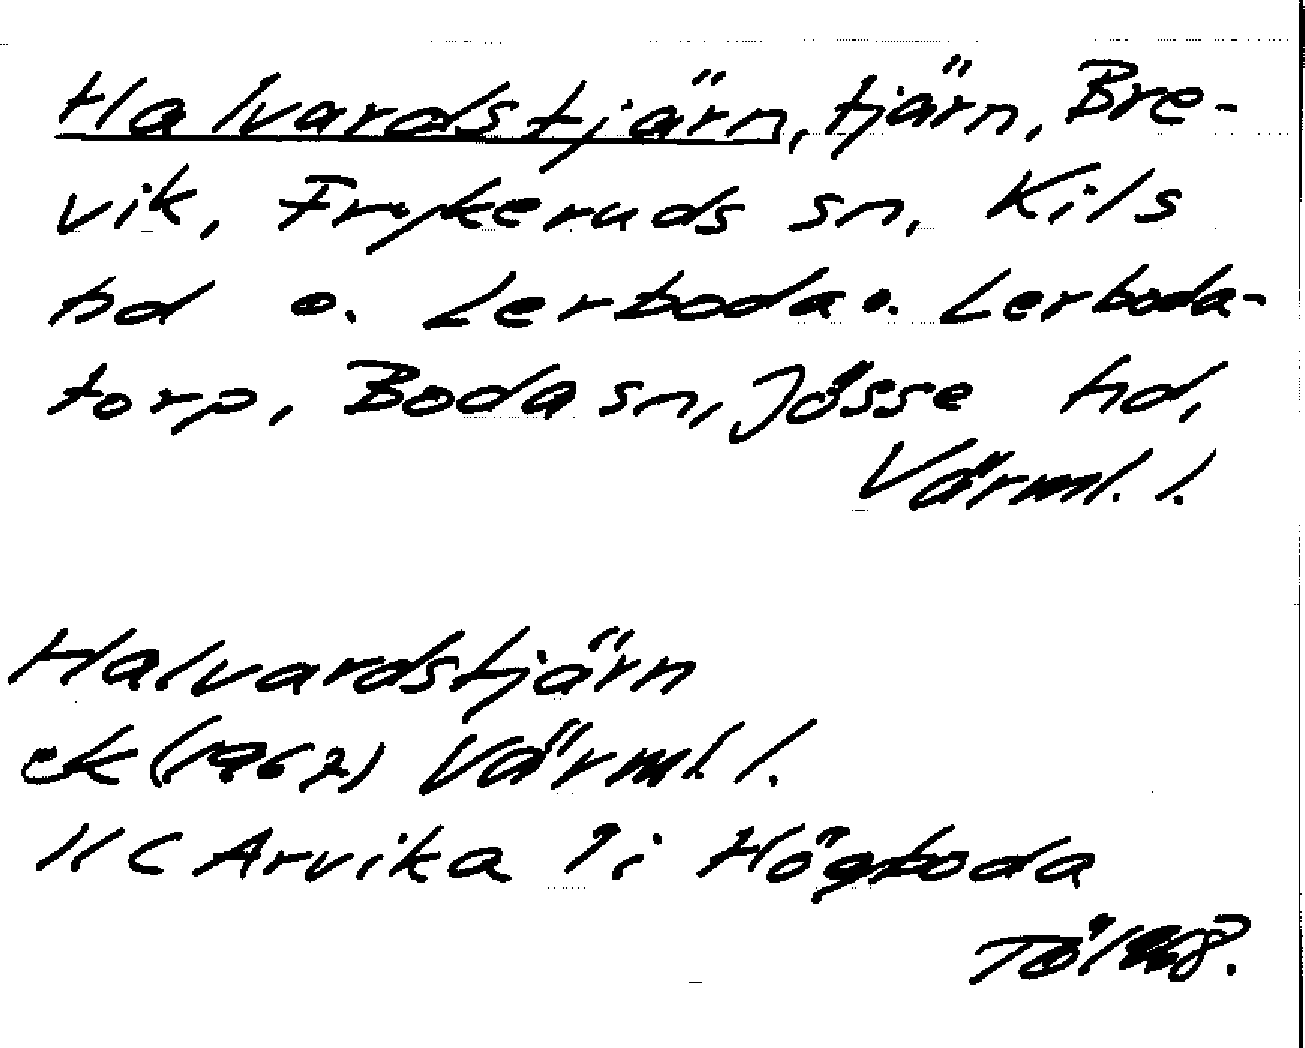 Halvardstjärn, tjärn, Bre-
vik, Frykeruds sn, Kils
hd o. Lerboda o. Lerboda-
torp, Boda sn, Jösse hd,
Värml. l.
Halvardstjärn
ek (1967) Värml. l.
11C Arvika 9i Högboda